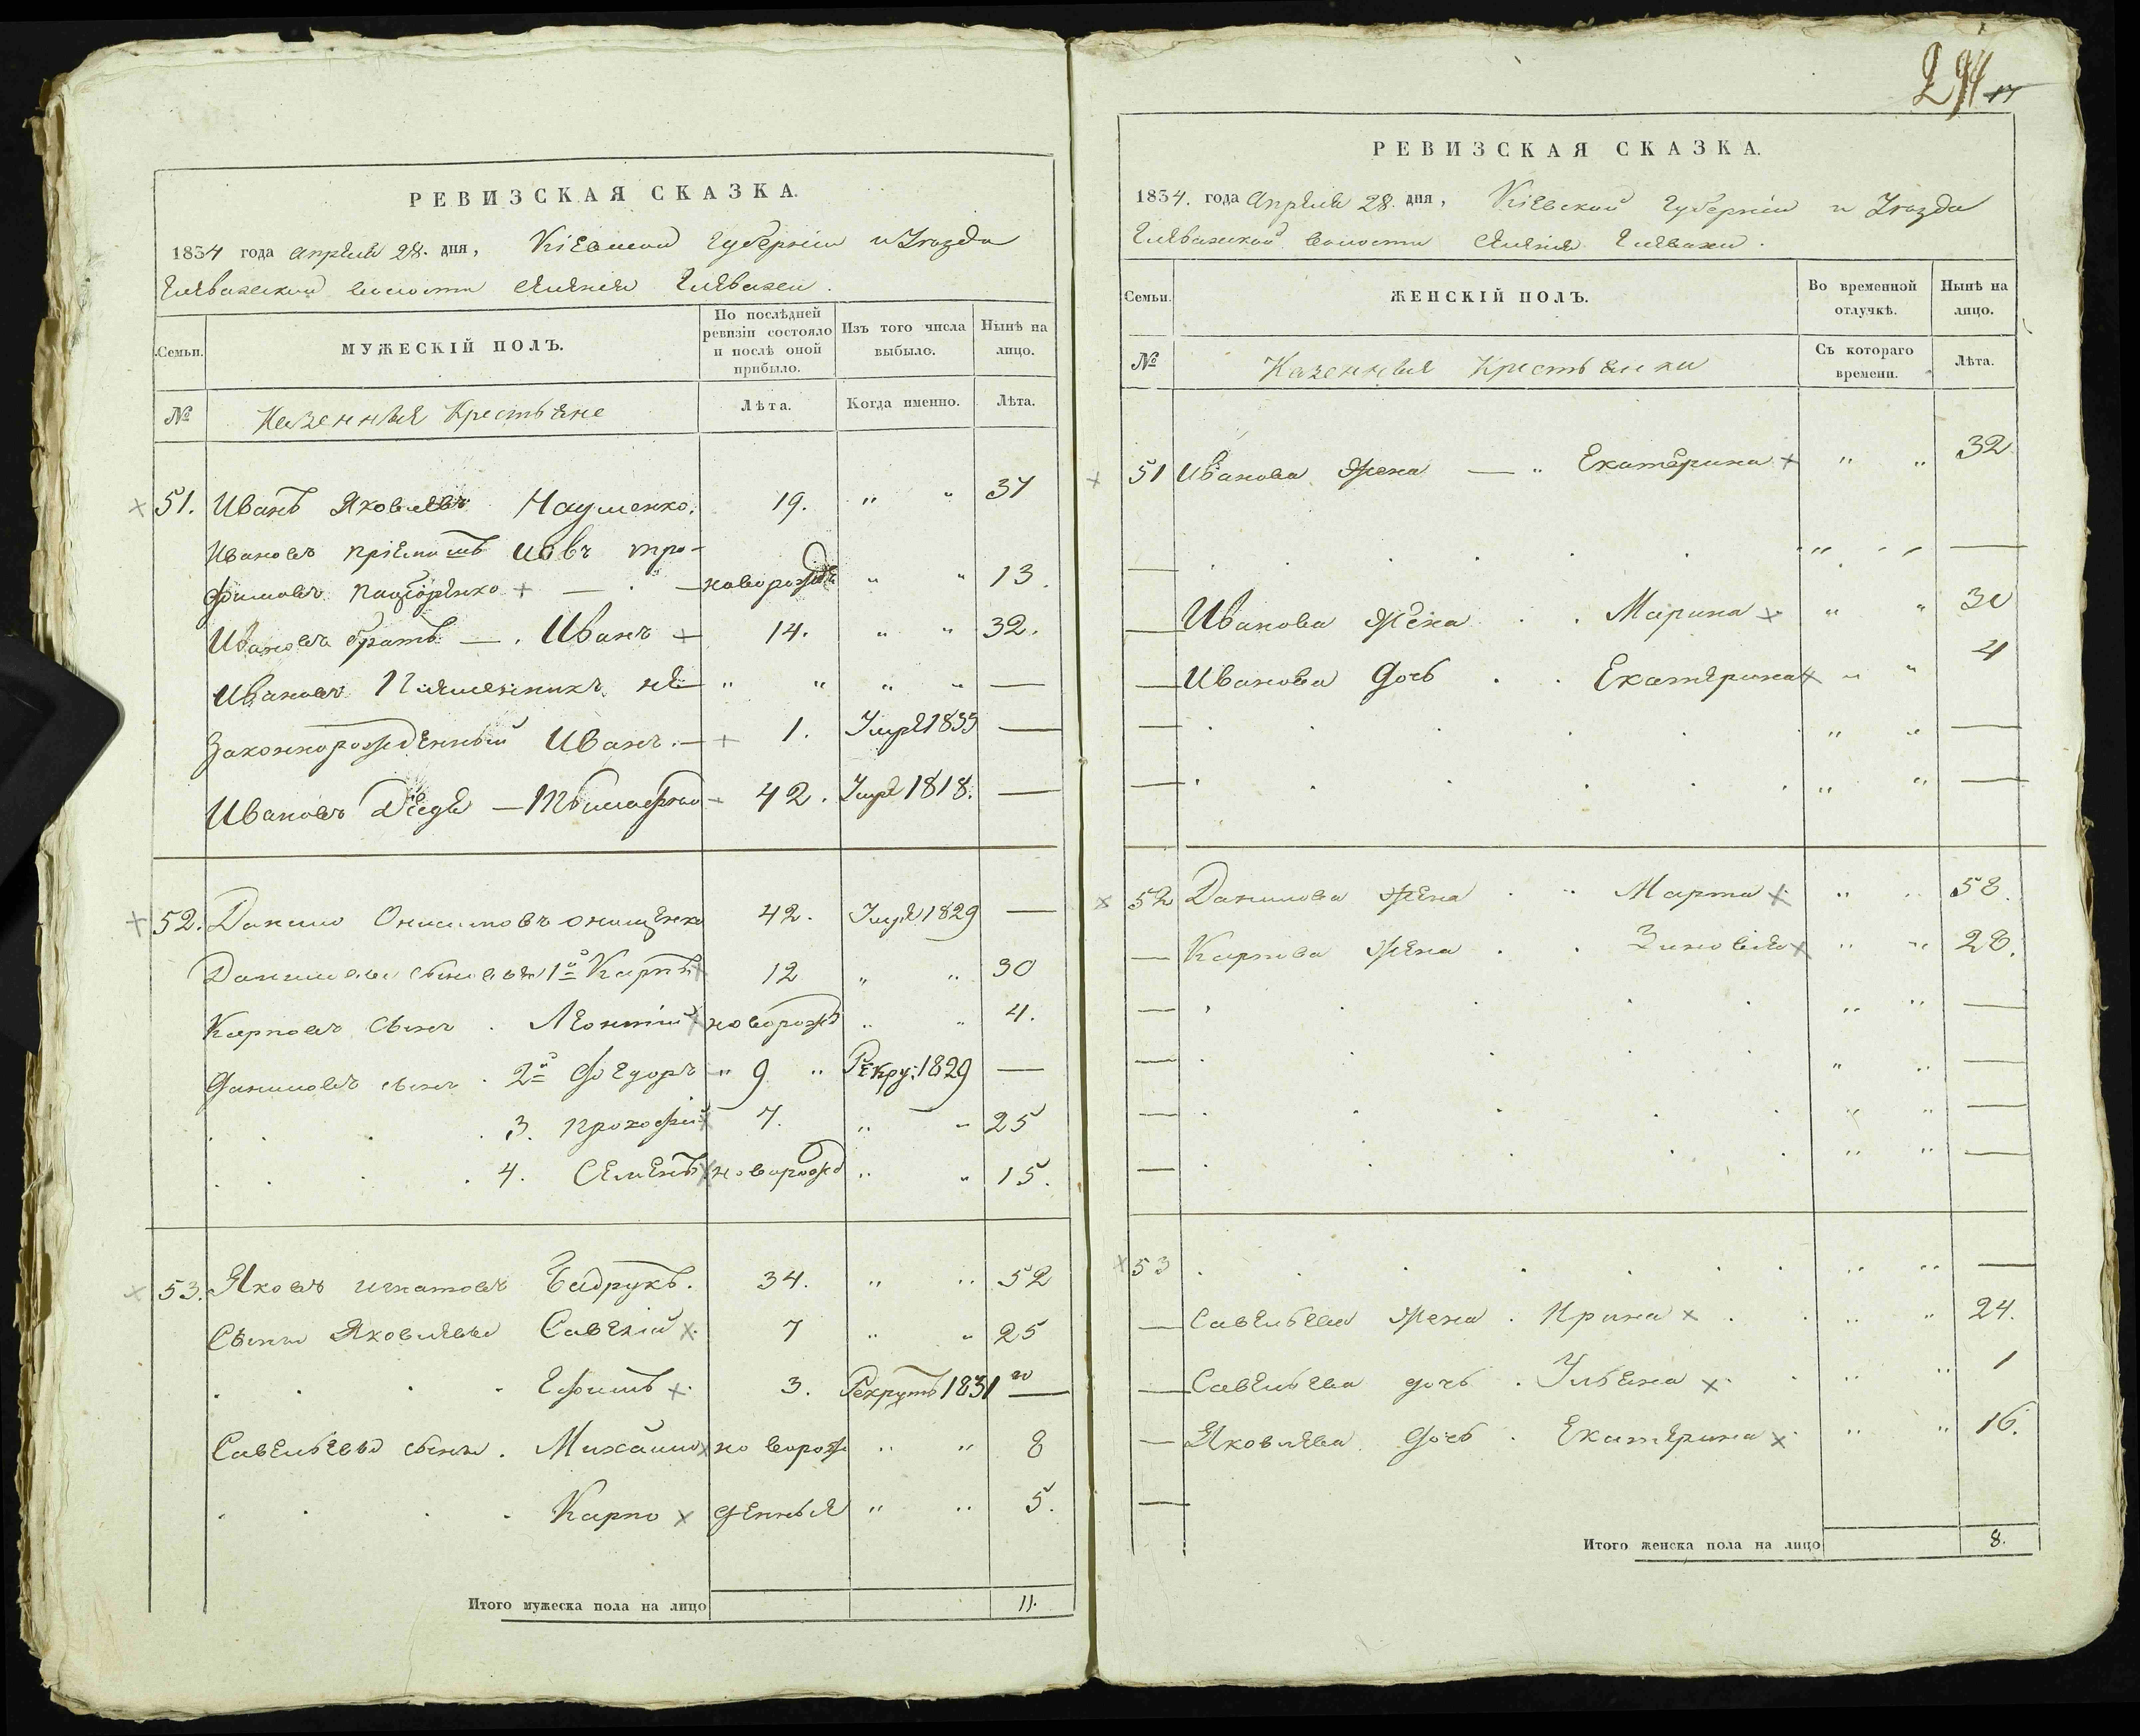 РЕВИЗСКАЯ СКАЗКА.
1834 года апреля 28. дня, Кіевской губерніи и уезда
волости селенія
Семьи.
МУЖЕСКІЙ ПОЛЪ.
По послѣдней ревизіи состояло и послѣ оной прибыло.
Изъ того числа выбыло.
Нынѣ на лицо.
№
Казенныя Крестьяне
Лѣта.
Когда именно.
Лѣта.
51. Иванъ Яковлевъ Науменко. 19. " " 37
Ивановъ пріемышъ Иовъ Тро-
фимовъ новорожд " " 13.
Ивановъ братъ — . Иванъ — 14. " " 32.
Ивановъ племенникъ не- " " " " —
законнорожденный Иванъ. — 1. Умре 1833 —
Ивановъ дедя — 42. Умре 1818. —
52. Данило Онисимовъ Онищенко 42. Умре 1829 —
Даниловы сыновья 1й Карпъ 12 " " 30
Карповъ сынъ . Леонтій новорожд " " 4.
Даниловъ сынъ . 2й Федоръ " 9 " Рекру: 1829 —
. . . . 3. Прокофій 7. " " 25
. . . . 4. Семенъ новорожд " " 15.
53. Яковъ Игнатовъ Бидрукъ. 34. " " 52
Сыны Яковлевы Савелій 7 " " 25
. . . . Ефимъ 3. Рекрутъ 1831го —
Савельевы сыны . Михайло новорож " " 8
. . . . Карпо денныя " " 5.
Итого мужеска пола на лицо 11.
294 17
РЕВИЗСКАЯ СКАЗКА.
1834. года апреля 28. дня, Кіевской губерніи и уезда
волости селенія
Семьи.
ЖЕНСКІЙ ПОЛЪ.
Во временной отлучкѣ.
Нынѣ на лицо.
№
Казенныя Крестьянки
Съ котораго времени.
Лѣта.
51 Иванова жена — " Екатерина " " 32
— . . . . " " —
— Иванова жена . . Марина " " 30
— Иванова дочь . . Екатерина " " 4
— . . . . " " —
— . . . . " " —
52 Данилова жена . " Марта " " 58.
— Карпова жена . . Зиновія " " 28.
— . . . . " " —
— . . . . " " —
— . . . . " " —
— . . . . " " —
53 . . . . . . " " —
— Савельева жена . Ирина . . " " 24.
— Савельева дочь . Ульяна . " " 1
— Яковлева дочь . Екатерина " " 16.
—
Итого женска пола на лицо 8.